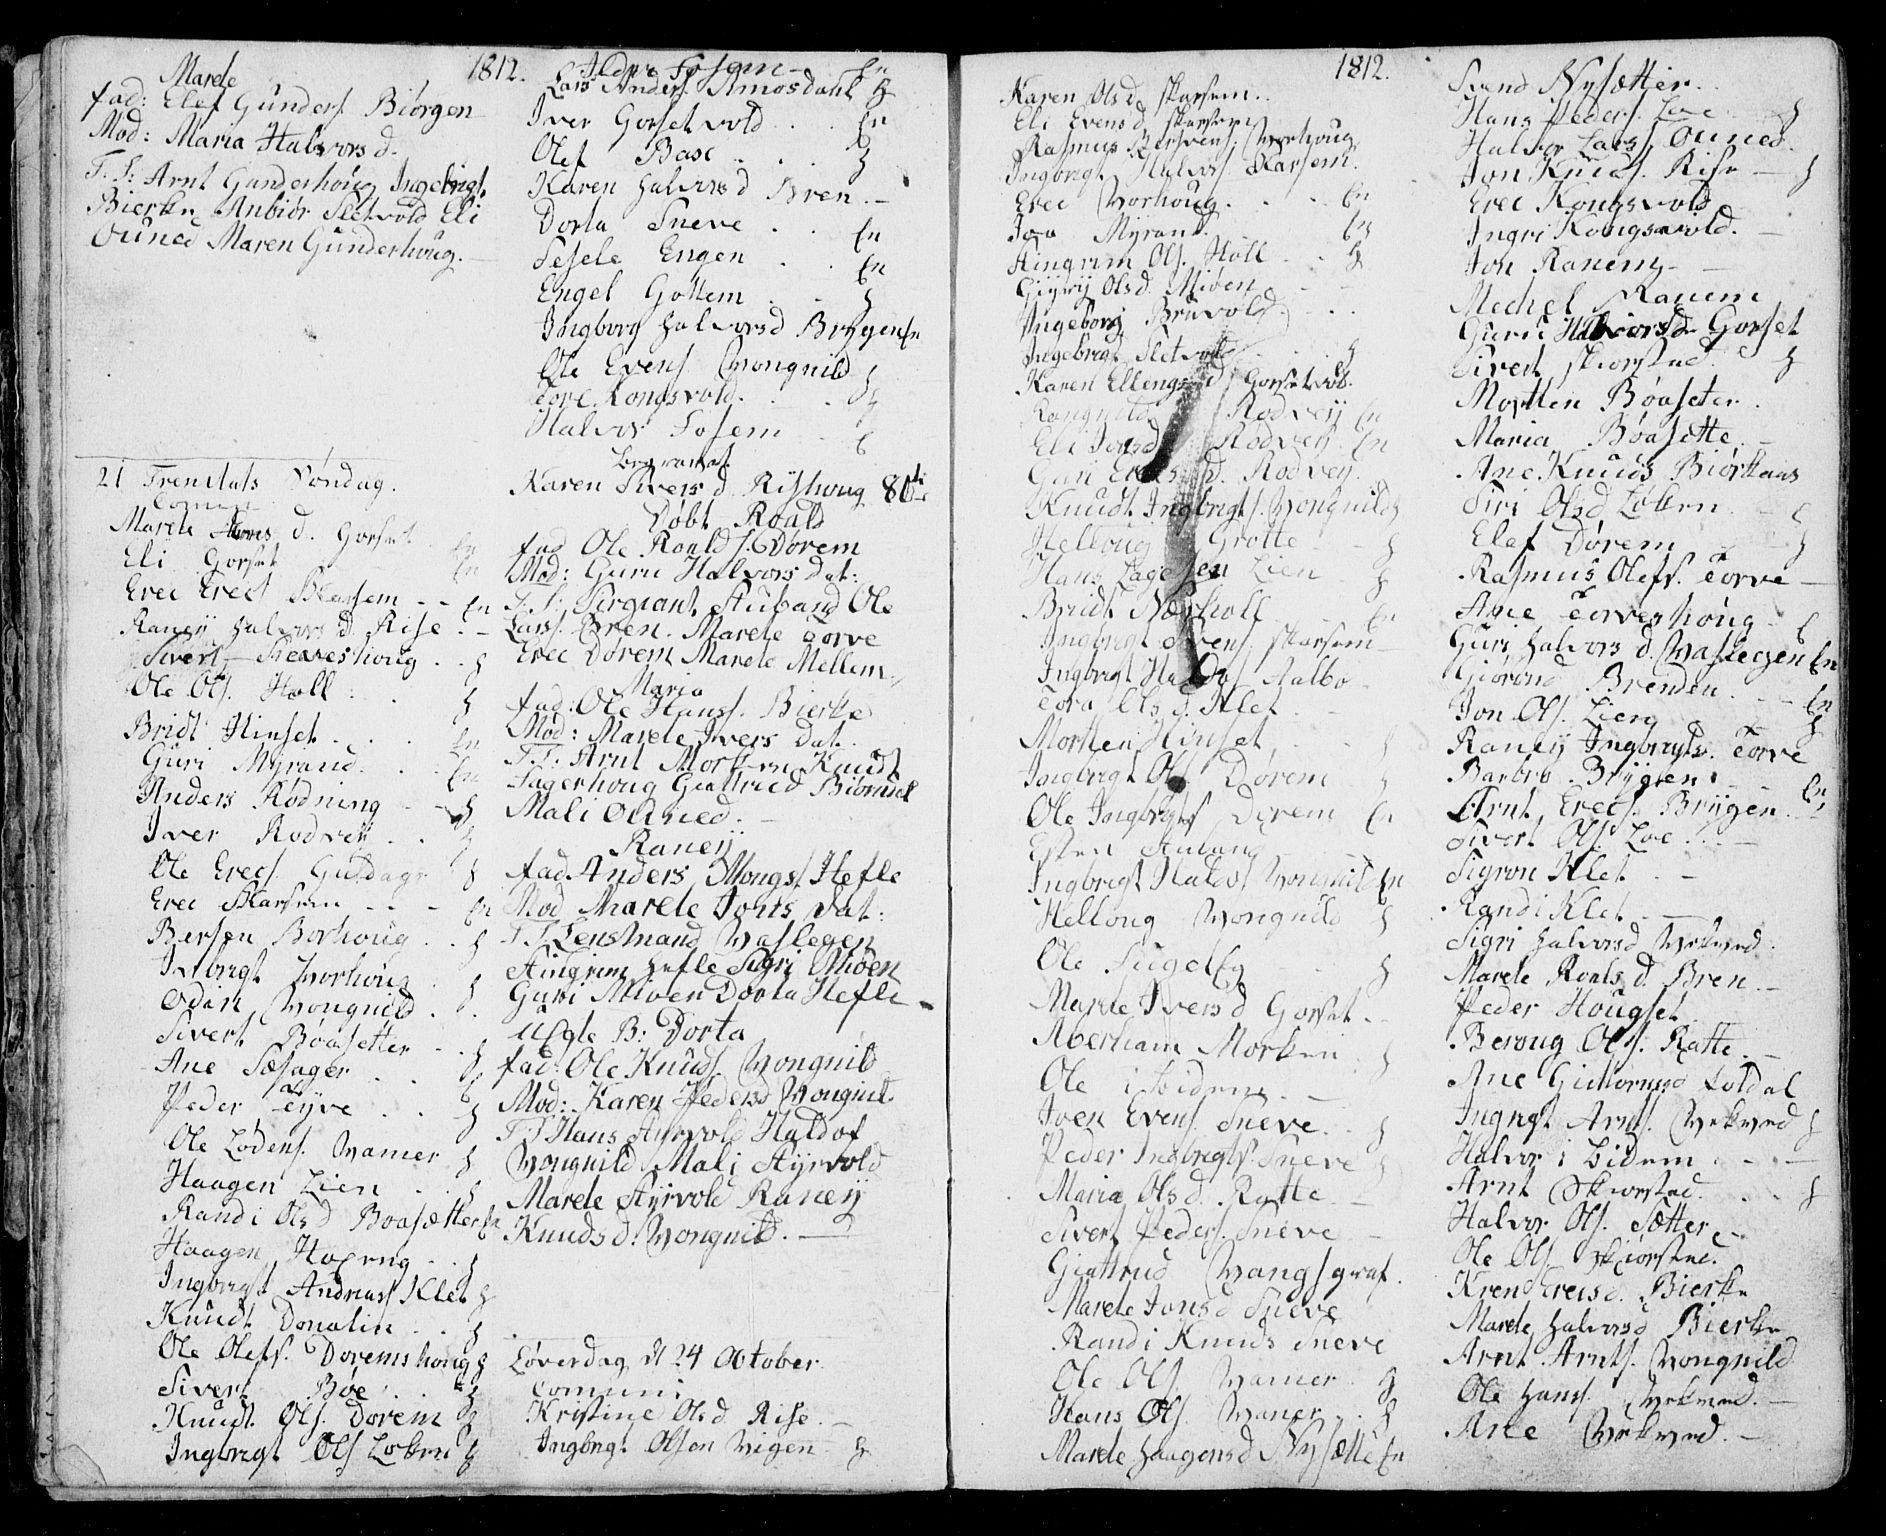 1812.
Marele
fad: Elef Gunders. Biörgen
Mod: Maria Halvors d.
F. S: Arnt Gunderhoug Ingebrigt
Bierke Anbiör Sletvold Eli
Ouned Maren Gunderhoug.
21 Trenitats Söndag.
Marele d. Gorset
Eli Gorset En
Erec Erecs Skarsem - - En
Raney Halvors d. Rise. -
Sivert Teeveshoug . .
Ole Ols. Holl
Bridt Hinset . . . En
Guri Myrand . . En
Anders Rödning
Iver Rodvey . .
Ole Erecs. Guldagr
Erec Skarsem - - - En
Bersen Vorhoug . .
Ingbrigt Vorhoug
Odin Vongnild . .
Sivert Böasetter
Ane Sæsager . .
Peder Tyve . .
Ole Lodens. Wamer
Haagen Lien . .
Randi Olsd Boasætter En
Haagen
Ingbrigt Andreas. Klet
Knudt Donalin . .
Ole Olefs. Doremshoug
Sivert Böe . .
Knudt Ols. Dorem
Ingbrigt Ols Loken
Peder Fosem - En
Lars Anders. Almosdahl
Iver Gorsetvold . . En
Olef Base . . .
Karen Halvorsd Bren. -
Dorta Sneve . . En
Sesele Engen . . En
Engel Gottem . .
Ingborg Halvorsd Brygen En
Ole Evens. Vongnild
Tore Kongsvold.
Halvor Fosem
Begravet
Karen Sivers d. Rishoug 80
Döbt Roald
fad Ole Roalds. Dorem
Mod: Guru Halvors Dat:
F. S: Sergiant Stuband Ole
Lars. Bren. Marele Torve
Erec Dorem Marele Mellem.
Maria
fad: Ole Hans. Bierke
Mod: Marele Ivers Dat.
F. S: Arnt Morken Knudt
Sagerhoug Giertrud Biörndal
Mali Ouned. -
Raney
fad. Anders Mongs. Hefle
Mod Marele Jons Dat:
F. S Lensmand Vaslegen
Stingrim Hefle Sigri Miöen
Guri Miöen Dorta Hefle
Uegte B: Dorta
fad: Ole Knuds. Vongnild
Mod: Karen Pedersd Vongnil.
F. S Hans Styrvold Haldof
Vongnild Mali Styrvold
Marele Styrvold Raney
Knudsd. Vongnild. -
Löverdag d 24 Oktober.
Comuni
Kristine Olsd Rise. -
Ingbrigt Olsen Vigen
1812.
Karen Olsd Skarsem . .
Eli Evensd Skarsem
Rasmus Bersvens. Vorhoug
Ingbrigt Halvors. Skarsem.
Erec Vorhoug . . . . En
Joa Myrand. En
Stingrim Ols. Holl . .
Giyry Olsd. Miöen
Ingeborg Bruvold . . .
Ingebrigt Sletvold
Karen Ellengsd Gorsetvol.
Rangnilda Rodvey En
Eli Jonsd Rodvey En
Guri d. Rodvey.
Knudt Ingbrigts. Vongnild
Hellvug Grotte
Hans Lagesen Lien
Bridt Nærholl . En
Ingbrigt Svens. Skarsem
Ingbrigt Haldos. Aalbo
Tora Ols d. Klet . .
Morten Hinset
Ingbrigt Ols Dorem
Ole Ingbrigts Dorem En
Esten Stuland
Ingbrigt Haldos Vongnild En
Hellong Vongnild
Ole Sugel En
Marie Ivers d Gorset . -
Aberham Morken .
Ole i Lidem
Joen Evens. Sneve
Peder Ingbrigts. Sneve
Maria Ols d. Ratte
Sivert Peders. Sneve
Giertrud Vangsgraf.
Marele Jonsd Sneve
Randi Knuds Sneve
Ole Ols Wamer.
Hans Ols. Wamer . .
Marele Haagensd Nysætte En
Svend Nysætter. .
Hans Peders. Loe
Halvor Lars. Ouned.
Jon Knuds. Rise
Erec Kongsvold
Ingri Kongsvold. -
Jon Ranem -
Mechel Ranem
Guri Halvorsd Gorset
Sivert Skiorstad.
Morten Böaseter.
Maria Böasette. -
Ane Knuds Biörkaas
Siri Olsd Loken.
Elef Dorem
Rasmus Olefs. Torve -
Ane Torveshoug -
Guri Halvors d. Vaslegen En
Giörond Brenden. - - En
Jon Ols. Lien
Raney Ingbrigts. Torve
Barbro Brygen . . . En
Arnt Erecs. Brygen. - -
Sivert Ols. Loe . . . -
Sigron Klet . -
Randi Klet
Sigri Halvorsd Vekved.
Marele Roals d. Bren. -
Peder Hougset
Beroug Ols. Ratte . -
Ane Guttormsd Loldal
Ingrigt Arnts. Vekved
Halvor i Lidem . - -
Arnt Skiorstad. . . .
Halvor Ols. Sætter -
Ole Ols Skiörstad.
Karen Erecsd. Bierke
Marele Halvorsd Bierke
Arnt Arnts. Vongnild
Ole Hans. Vekved. -
Ane Vekved. -